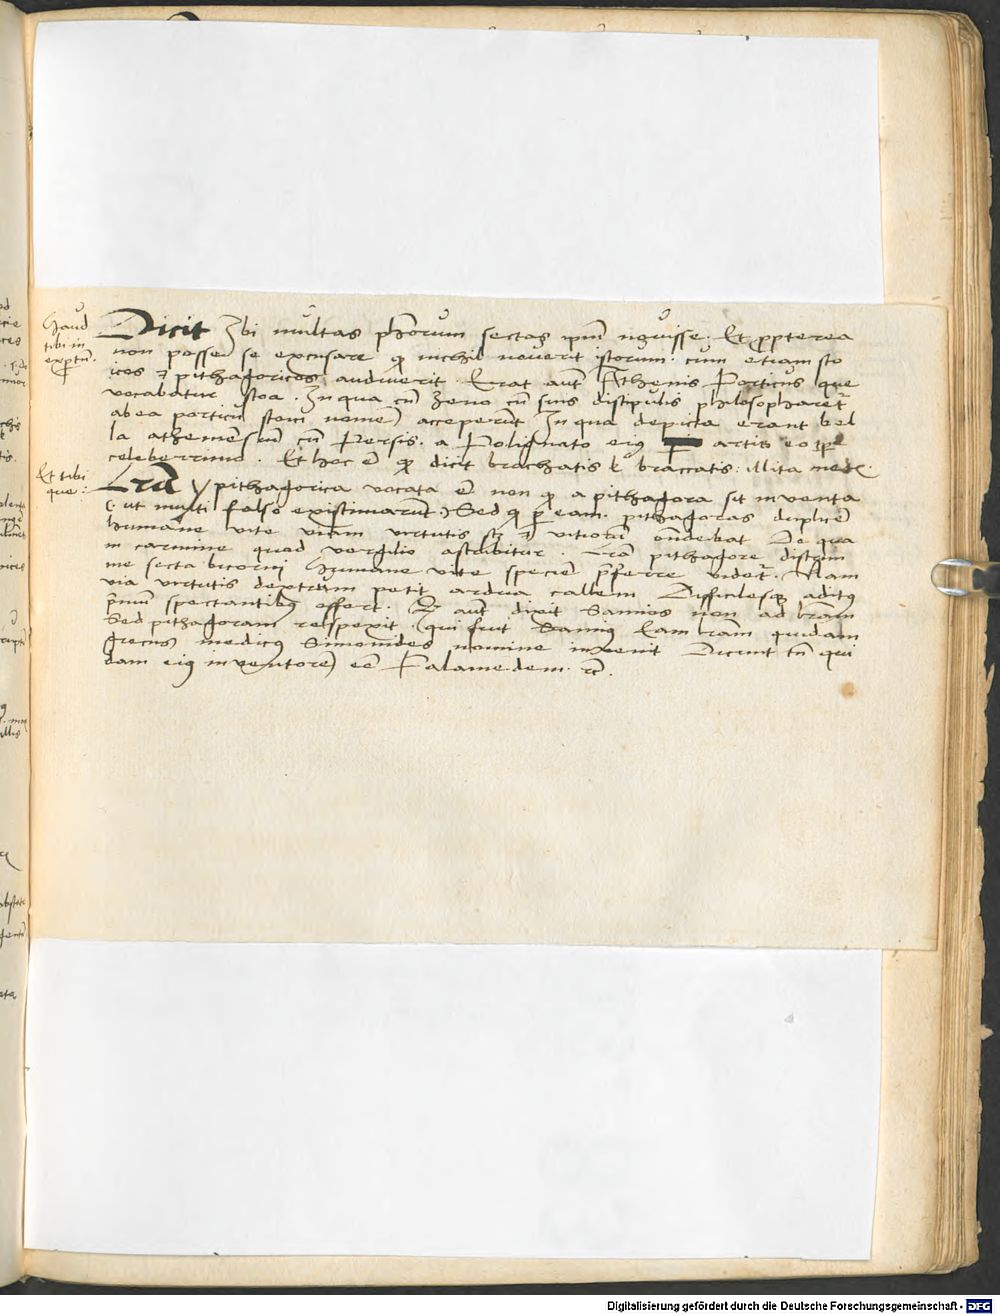 Haud
tibi in
exptū.
Dicit Ibi multas phōrum sectas ipm̄ nouisse. Et propterea
non posse se excusare quod nichil nouerit istorum. cum etiam sto
icos et pithagoricos audiuerit. Erat aut̄ Athenis Porticus que
vocabatur stoa. In qua cū Zeno cū suis discipulis philosopharet͛
ab ea porticu stoici nomē acceperūt In qua depicta erant bel
la atheniensiū cū Persis. a Polignato eiꝰ artis eo tp̄e
celeberrimo. Et hoc ē quod dicit brachatis l' braccatis: illita medis.
Et tibi
que:
Lr̄a Y pithagorica vocata ē non quod a pithagora sit inuenta
(ut multi falso existimarūt) Sed quod per eam pithagoras duplicē
humane vite viam virtutis scz et vitiorū ondebat De qua
in carmine quod vergilio ascribitur. Lr̄a pithagore discrim
ine secta bicorni Humane vite speciē p̄ferre videt͛. Nam
via virtutis dextrum petit ardua callem Difficilesque aditꝰ
p̄mū spectantibꝰ offert. Qd aut̄ dixit Samios non ad lr̄am
Sed pithagoram respexit (qui fuit Samiꝰ Eam lr̄am quidam
grecus medicꝰ Simonides nomine inuenit Dicunt tn̄ qui
dam eiꝰ inuentorē eē Palamedem. rc̄.
Digitalisierung gefördert durch die Deutsche Forschungsgemeinschaft - DFG